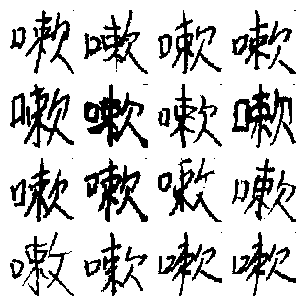 嗽嗽嗽嗽
嗽嗽嗽嗽
嗽嗽嗽嗽
嗽嗽嗽嗽